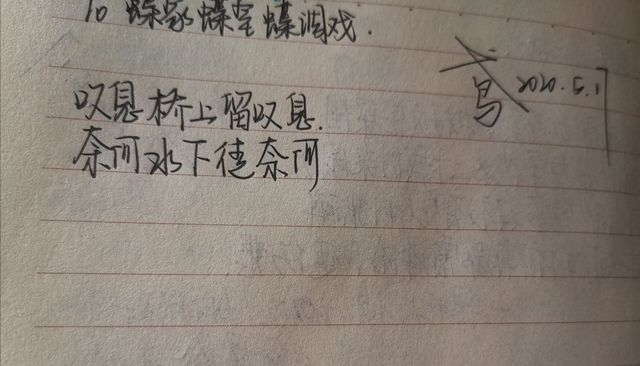 蝶家蝶宝蝶调戏.
叹息桥上留叹息.
奈何水下徒奈何
鸢 2020.5.17